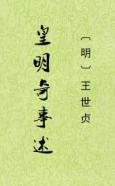 皇明奇事述
〔明〕王世贞